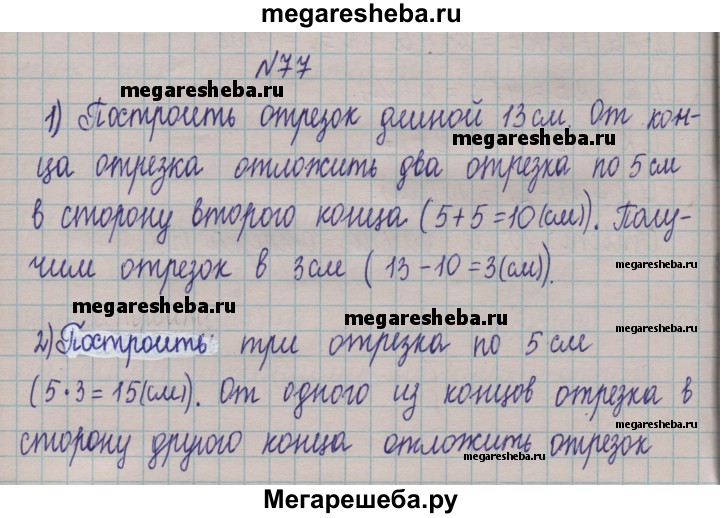 megaresheba.ru
N77
megaresheba.ru
1) Построить отрезок длиной 13 см. От кон-
megaresheba.ru
ца отрезка отложить два отрезка по 5 см
в сторону второго конца (5+5=10(см)). Полу-
чим отрезок в 3 см (13-10=3(см)).
megaresheba.ru
megaresheba.ru
megaresheba.ru
megaresheba.ru
2) Построить три отрезка по 5 см
(5·3=15(см)). От одного из концов отрезка в
сторону другого конца отложить отрезок
megaresheba.ru
megaresheba.ru
Мегарешеба.ру